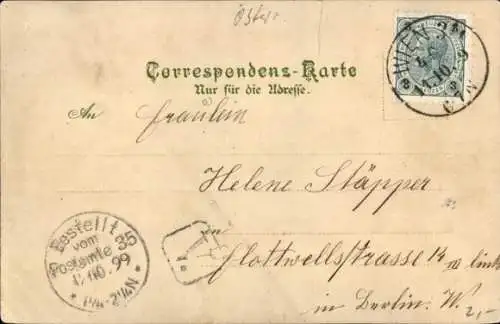 Österr
WIEN
Correspondenz-Karte
Nur für die Adresse.
An Fräulein
Helene Stäpper
Flottwellstrasse 14 III links
in Berlin. W.
Bestellt
vom
Postamte 35
10.99